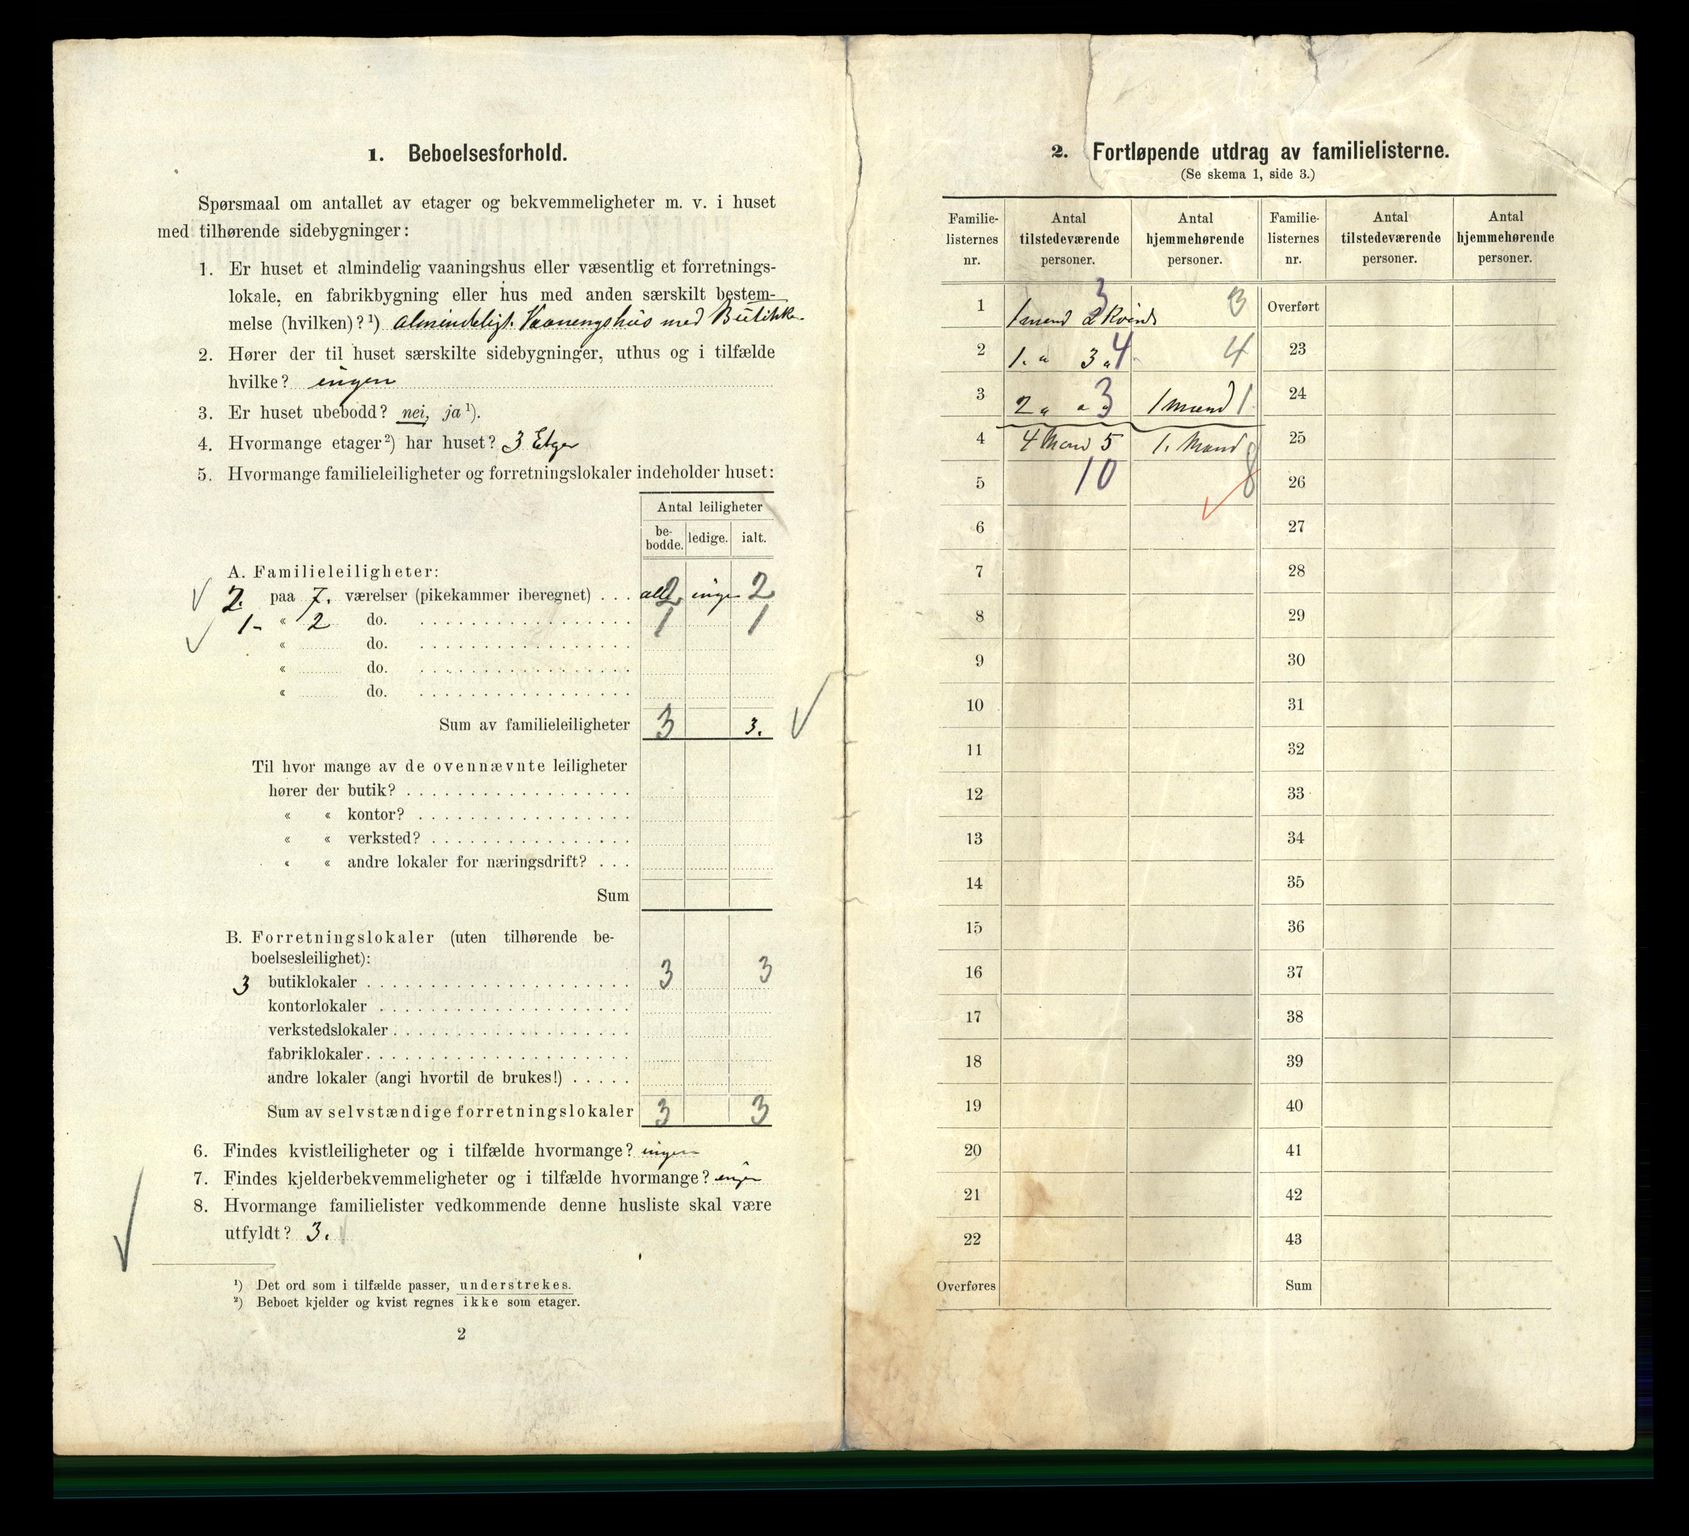 1. Beboelsesforhold.
Spørsmaal om antallet av etager og bekvemmeligheter m. v. i huset
med tilhørende sidebygninger:
1. Er huset et almindelig vaaningshus eller væsentlig et forretnings-
lokale, en fabrikbygning eller hus med anden særskilt bestem-
melse (hvilken)?¹) almindeligt. Vaaningshus med Butikke
2. Hører der til huset særskilte sidebygninger, uthus og i tilfælde
hvilke? ingen
3. Er huset ubebodd? nei, ja¹).
4. Hvormange etager²) har huset? 3 Etger
5. Hvormange familieleiligheter og forretningslokaler indeholder huset:
Antal leiligheter
be-
bodde. ledige. ialt.
A. Familieleiligheter:
2. paa 7. værelser (pikekammer iberegnet) . . . 2 2
1- « 2 do. 1 1
« do.
« do.
« do.
Sum av familieleiligheter 3 3.
Til hvor mange av de ovennævnte leiligheter
hører der butik?
« « kontor?
« « verksted?
« « andre lokaler for næringsdrift?
Sum
B. Forretningslokaler (uten tilhørende be-
boelsesleilighet):
3 butiklokaler 3 3
kontorlokaler
verkstedslokaler
fabriklokaler
andre lokaler (angi hvortil de brukes!)
Sum av selvstændige forretningslokaler 3 3
6. Findes kvistleiligheter og i tilfælde hvormange? ingen
7. Findes kjelderbekvemmeligheter og i tilfælde hvormange? ingen
8. Hvormange familielister vedkommende denne husliste skal være
utfyldt? 3.
¹) Det ord som i tilfælde passer, understrekes.
²) Beboet kjelder og kvist regnes ikke som etager.
2
2. Fortløpende utdrag av familielisterne.
(Se skema 1, side 3.)
Familie-
listernes
nr.
Antal
tilstedeværende
personer.
Antal
hjemmehørende
personer.
Familie-
listernes
nr.
Antal
tilstedeværende
personer.
Antal
hjemmehørende
personer.
1 1 mand 2 Kvind 3 3 Overført
2 1. " 3 " 4 4 23
3 2 " " " 3 1 mand 1 24
4 4 Mand 5 1. Mand 25
5 10 8 26
6 27
7 28
8 29
9 30
10 31
11 32
12 33
13 34
14 35
15 36
16 37
17 38
18 39
19 40
20 41
21 42
22 43
Overføres Sum